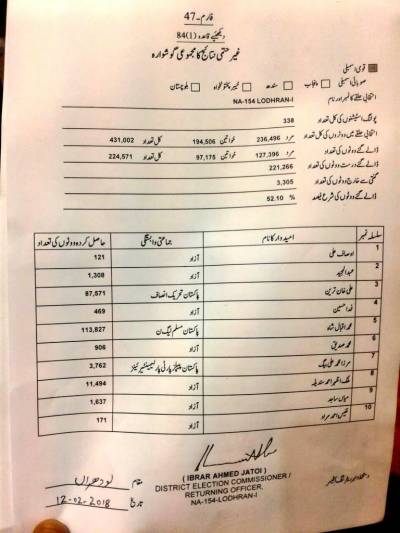 فارم۔47
دیکھیئے قاعدہ (1)84
غیر حتمی نتائج کا مجموعی گوشوارہ
قومی اسمبلی
صوبائی اسمبلی پنجاب سندھ خیبر پختونخواہ بلوچستان
انتخابی حلقے کا نمبر اور نام NA-154 LODHRAN-I
پولنگ اسٹیشنوں کی کل تعداد 338
انتخابی حلقے میں ووٹروں کی کل تعداد مرد 236,496 خواتین 194,506 کل تعداد 431,002
ڈالے گئے ووٹوں کی تعداد مرد 127,396 خواتین 97,175 کل تعداد 224,571
ڈالے گئے درست ووٹوں کی تعداد 221,266
گنتی سے خارج ووٹوں کی تعداد 3,305
ڈالے گئے ووٹوں کی شرح فیصد 52.10 %
سلسلہ نمبر امیدوار کا نام جماعتی وابستگی حاصل کردہ ووٹوں کی تعداد
1 اوصاف علی آزاد 121
2 عبدالمجید آزاد 1,308
3 علی خان ترین پاکستان تحریک انصاف 87,571
4 فدا حسین آزاد 469
5 محمد اقبال شاہ پاکستان مسلم لیگ ن 113,827
6 محمد صدیق آزاد 906
7 مرزا محمد علی بیگ پاکستان پیپلز پارٹی پارلیمنٹیرینز 3,762
8 ملک اظہر احمد سندیلہ آزاد 11,494
9 میاں ساجد آزاد 1,637
10 نفیس احمد مراد آزاد 171
( IBRAR AHMED JATOI )
DISTRICT ELECTION COMMISSIONER /
RETURNING OFFICER,
NA-154-LODHRAN-I
مقام لودھراں
تاریخ 12-02-2018